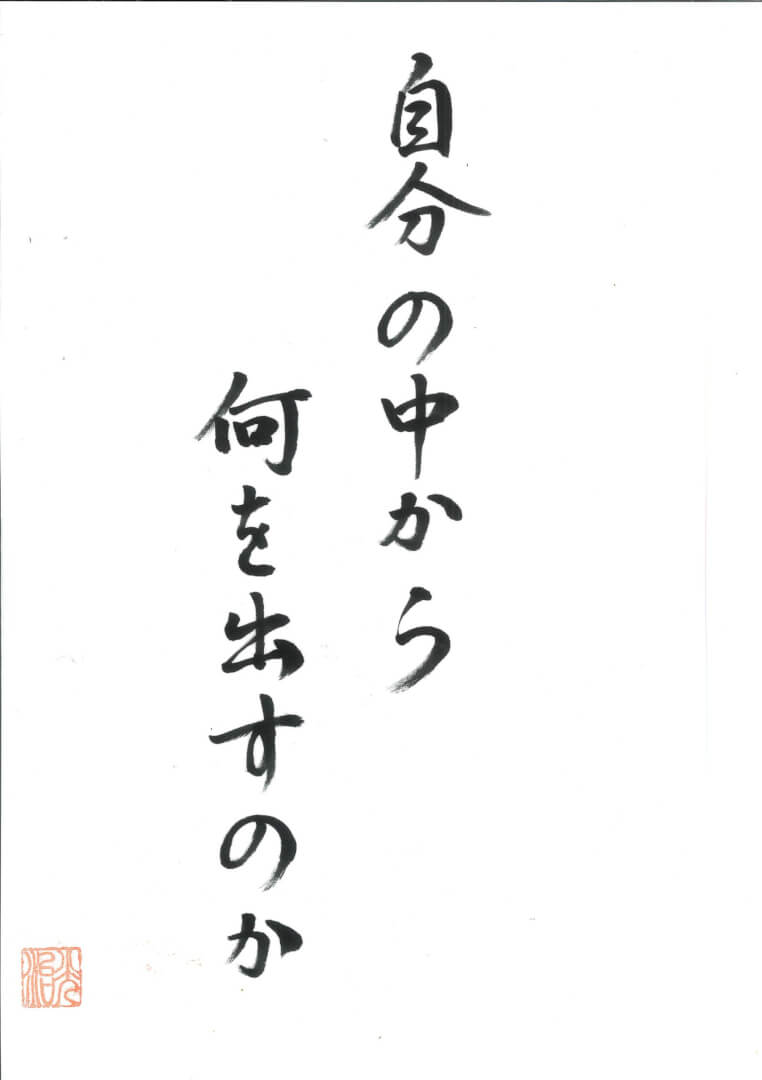 自分の中から
何を出すのか